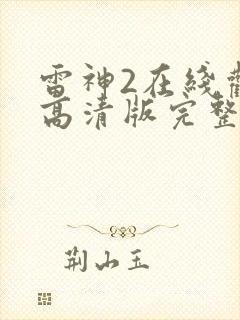 雷神2在线
高清版完整
荆山玉